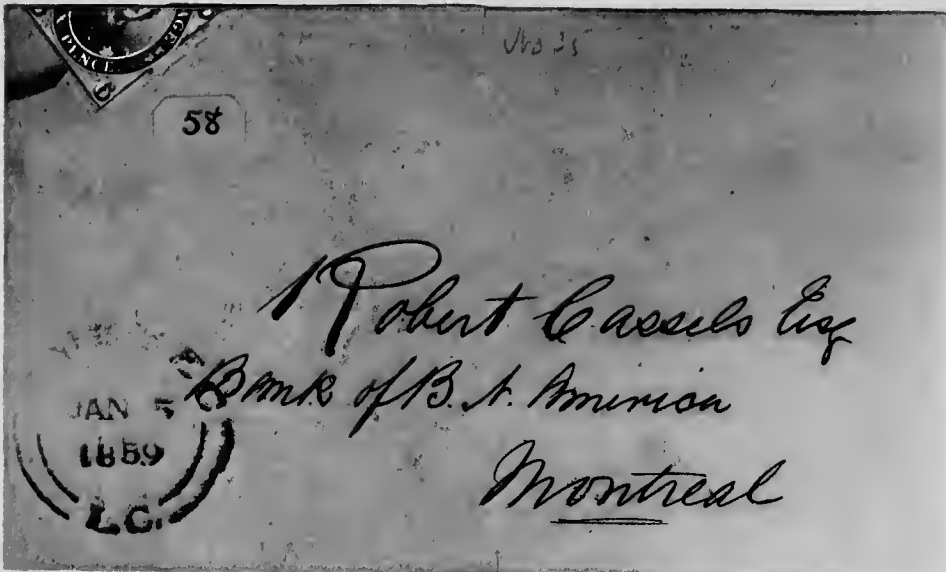 PENCE
58
No 25
Robert Cassels Esq
Bank of B. N. America
Montreal
JAN 5
1859
L.C.